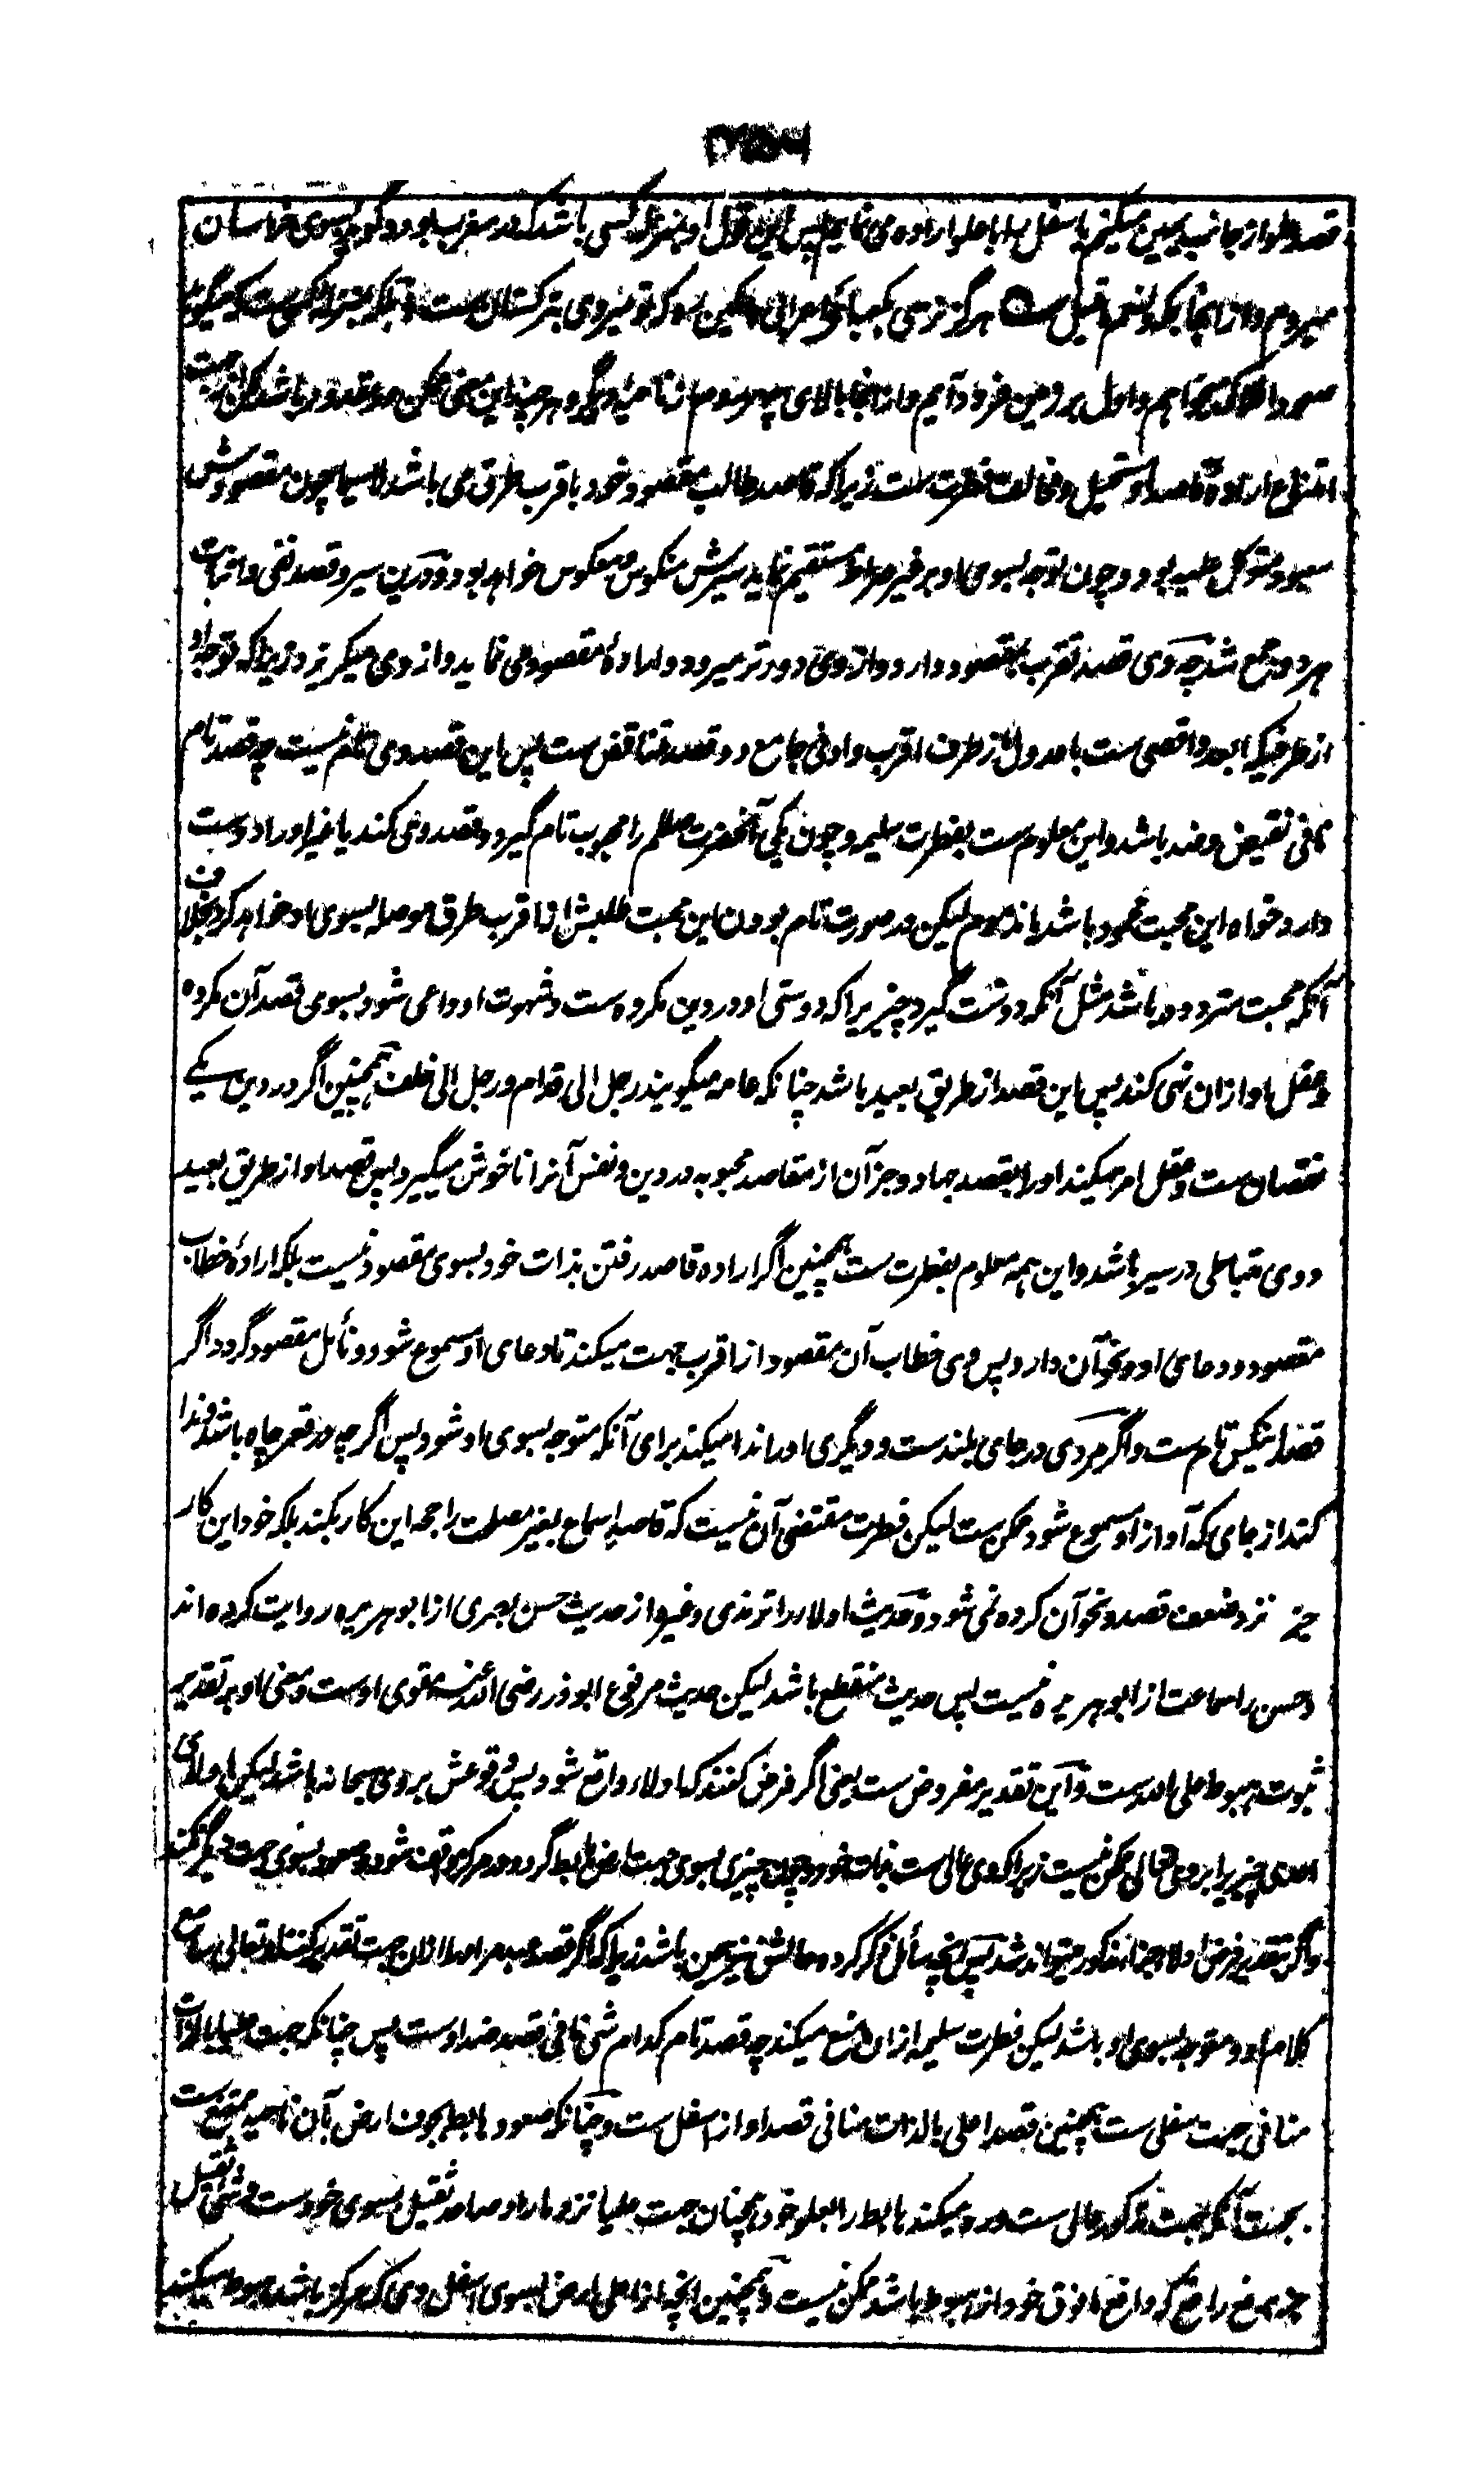 قصد علو از جانب یمین میکنم یا سفل را یا علو اراده می نمایم پس این قول او بمنزلهٔ کسی باشد که در مغرب بود و گوید بسوی خراسان
میروم و از اینجا بمکه هرگز نرسی بکعبه ای اعرابی کین ره که تو میروی بترکستان ست و بلکه بمنزلهٔ کسی ست که میگوید
و اول بر زمین فرود آیم و از اینجا بالای
امتناع اراده قاصد او مستحیل و مخالف فطرت ست زیرا که قاصد طالب مقصود خود با قرب طرق می باشد لا سیما چون مقصودش
معبود متوکل علیه بود و چون توجه بسوی او بر غیر صراط مستقیم نماید سیرش منکوس و معکوس خواهد بود و درین سیر و قصد نفی و اثبات
هر دو جمع شد چه وی قصد تقرب بمقصود دارد و از وی دورتر میرود و ارادهٔ مقصود می نماید و از وی میگریزد زیرا که توجه او
از طرفیکه ابعد و اقصی ست با عدول از طرف اقرب و ادنی جامع دو قصد متناقض ست پس این قصد وی تام نیست چه قصد تام
نافی نقیض و ضد باشد و این معلوم ست بفطرت سلیمه و چون یکی آنحضرت صللم را محبوب تام گیرد و قصد وی کند یا غیر او را دوست
دارد خواه این محبت محمود باشد یا مذموم لیکن در صورت تام بودن این محبت طلبش از اقرب طرق موصله بسوی او خواهد کرد بخلاف
آنکه محبت متردده باشد مثل آنکه دوست گیرد چیزیرا که دوستی او در دین مکروه ست و شهوت او داعی شود بسوی قصد آن مکروه
و عقل او ازان نهی کند پس این قصد از طریق بعید باشد چنانکه عامه میگویند رجل الی قدام و رجل الی خلف همچنین اگر در دین یکے
نقصان ست و عقل امر میکند او را بقصد جهاد و جز آن از مقاصد محبوبه در دین و نفس آنرا ناخوش میگیرد پس قصد او از طریق بعید
و وی متباطی در سیر باشد و این همه معلوم بفطرت ست همچنین اگر اراده قاصد رفتن بذات خود بسوی مقصود نیست بلکه ارادهٔ خطاب
مقصود و دعای او و نحو آن دارد پس وی خطاب آن مقصود از اقرب جهت میکند تا دعای او مسموع شود و نائل مقصود گردد اگر
قصد اینکس تام ست و اگر مردی در جای بلند ست و دیگری او را ندا میکند برای آنکه متوجه بسوی او شود پس اگر چه در قعر چاه باشد و ندا
کند از جای که آواز او مسموع شود ممکن ست لیکن فطرت مقتضی آن نیست که قاصد اسماع بغیر مصلحت راجحه این کار بکند بلکه خود این کار
جز نزد ضعف قصد و نحو آن کرده نمی شود و حدیث اولاء را ترمذی و غیره از حدیث حسن بصری از ابو هریره روایت کرده اند
و حسن را سماعت از ابو هریره نیست پس حدیث منقطع باشد لیکن حدیث مرفوع ابوذر رضی الله عنه مقوی اوست و معنی او بر تقدیر
ثبوت هبوط علی الله ست و این تقدیر مفروض ست یعنی اگر فرض کنند که اولاء واقع شود پس وقوعش بر وی سبحانه باشد لیکن اولای
احدی چیزیرا بر وی تعالی ممکن نیست زیرا که وی عالی ست بذات خود و چون چیزی بسوی جهت ارض هابط گردد در مرکز واقف شود و صعود بسوی جهت دیگر نکند
و اگر بتقدیر فرض اولاء جزا مذکور میتواند شد پس آنچه سائل ذکر کرده حالش نیز همین باشد زیرا که اگر قصد عبد مر او را ازان جهت تقدیر کنند او تعالی سامع
کلام او و متوجه بسوی او باشد لیکن فطرت سلیمه ازان منع میکند چه قصد تام کدام شی نافی قصد ضد اوست پس چنانکه جهت علیا بالذات
منافی جهت سفلی ست همچنین قصد اعلی بالذات منافی قصد او از اسفل ست و چنانکه صعود هابط بجوف ارض بآن ناحیه ممتنع ست
بجهت آنکه جهت مذکور عالی ست و رد میکند هابط را بعلو خود همچنان جهت علیا نزد ما راد صاعد ثقیل بسوی خودست و شی ثقیل
جز برفع رافع که دافع مافوق خود از هبوط باشد ممکن نیست و همچنین آنچه از اعلی ارض بسوی اسفل وی که مرکز باشد هبوط میکند